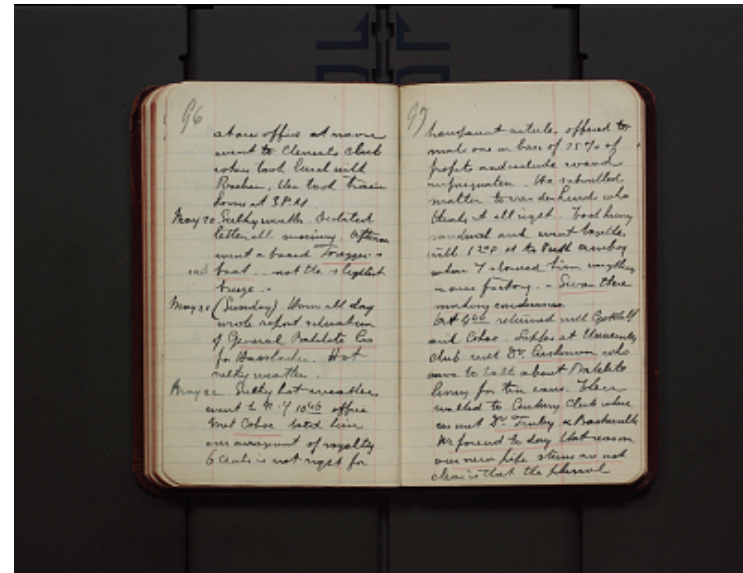 96
above office at noon
went to Chemists Club
where took lunch with
then took train
home at 3 P.M
May 20. Sultry weather. Dictated
letters all morning. Afternoon
went aboard Trapper's
sail boat - not the slightest
breeze. -
May 21 (Sunday) Home all day
wrote report
of General Bakelite Co
for Hasslacher. Hot
sultry weather.
May 22. Sultry hot weather
went to N.Y. office
met Cohoe told him
our arrangement of royalty
6 cents is not right for
97
article, offered to
make one on base of 25% of
profits and include wood
impregnation. He submitted
matter to who
it all right. Took
sandwich and went together
with to Perth Amboy
where I showed him everything
in our factory. - there
making condensers.
At returned with
and Cohoe. Supper at University
Club met Dr. Cushman who
came to talk about Bakelite
lining for tin cans. Then
walked to Century Club where
we met Dr. & Baskerville
We found to day that reason
our new pipe stems are not
clear is that the phenol